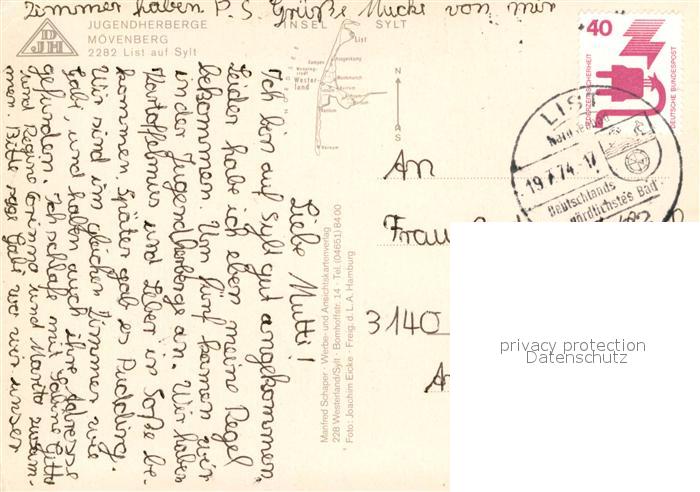 Zimmer haben P.S. Grüße Mucke von mir
JUGENDHERBERGE
MÖVENBERG
2282 List auf Sylt
DJH
INSEL SYLT
List
Kampen
Westerland
40
UNFALLVERHÜTUNG
DEUTSCHE BUNDESPOST
LIST
19.7.74.-17
Deutschlands
nördlichstes Bad
An
Frau
3140
privacy protection
Datenschutz
Manfred Schaper · Werbe- und Ansichtskartenverlag
228 Westerland/Sylt · Bomhoffstr. 14 · Tel. (04651) 8400
Foto: Joachim Eicke · Freig. d. L. A. Hamburg
Liebe Mutti!
Ich bin auf Sylt gut angekommen.
Leider habe ich eben meine Regel
bekommen. Um fünf kamen wir
in der Jugendherberge an. Wir haben
Kartoffelmus und Leber in Soße be-
kommen. Später gab es Pudding.
Wir sind im gleichen Zimmer wie
Gabi, und haben auch ihre Adresse
gefunden. Ich schlafe mit Sabine Gitta
und Regine Corinna und Marita zusam-
men. Bitte sage Gabi wo wir unser